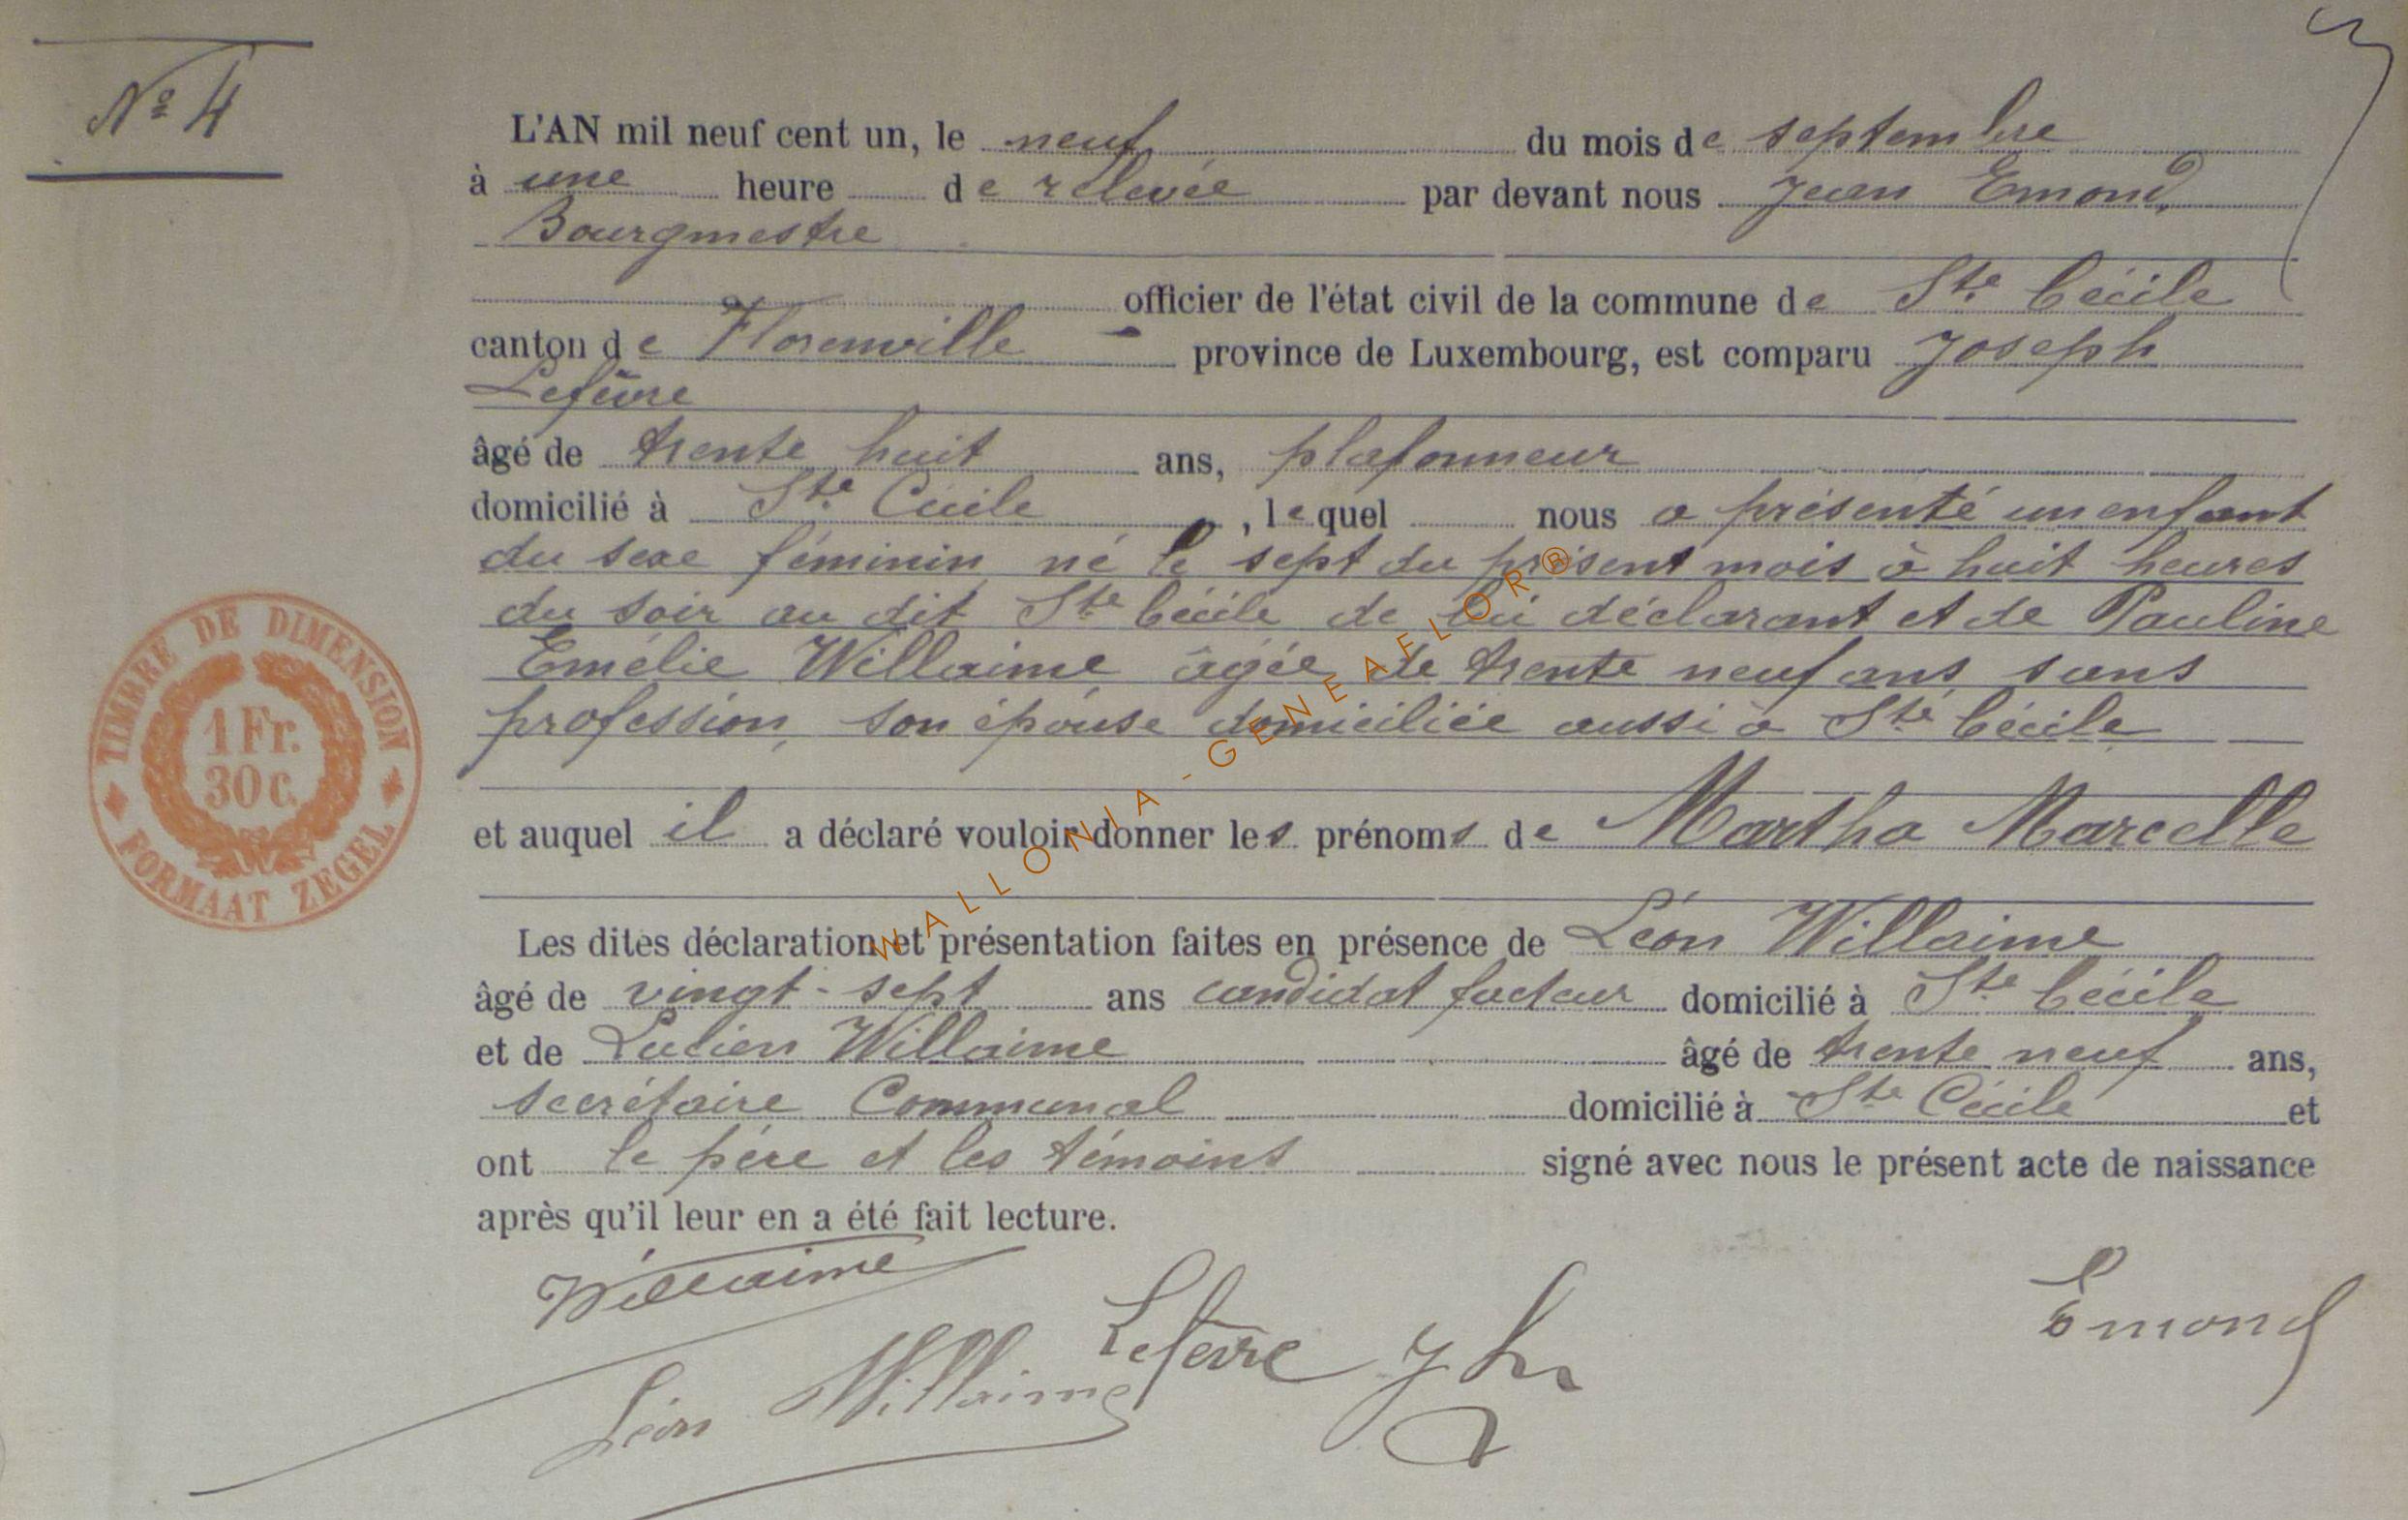 Nº 4
L'AN mil neuf cent un, le neuf du mois de septembre
à une heure de relevée par devant nous Jean Emond,
Bourgmestre
officier de l'état civil de la commune de Ste Cécile
canton de Florenville province de Luxembourg, est comparu Joseph
Lefèvre
âgé de trente huit ans, plafonneur
domicilié à Ste Cécile, lequel nous a présenté un enfant
du sexe féminin né le sept du présent mois à huit heures
du soir au dit Ste Cécile de lui déclarant et de Pauline
Emélie Willaime âgée de trente neuf ans sans
profession, son épouse domiciliée aussi à Ste Cécile
et auquel il a déclaré vouloir donner les prénoms de Martha Marcelle
Les dites déclaration et présentation faites en présence de Léon Willaime
âgé de vingt-sept ans candidat facteur domicilié à Ste Cécile
et de Lucien Willaime âgé de trente neuf ans,
secrétaire Communal domicilié à Ste Cécile et
ont le père et les témoins signé avec nous le présent acte de naissance
après qu'il leur en a été fait lecture.
Willaime
Léon Willaime
Lefèvre Jh
Emond
TIMBRE DE DIMENSION
1 Fr.
30 c.
FORMAAT ZEGEL
WALLONIA - GENEAFLOR®